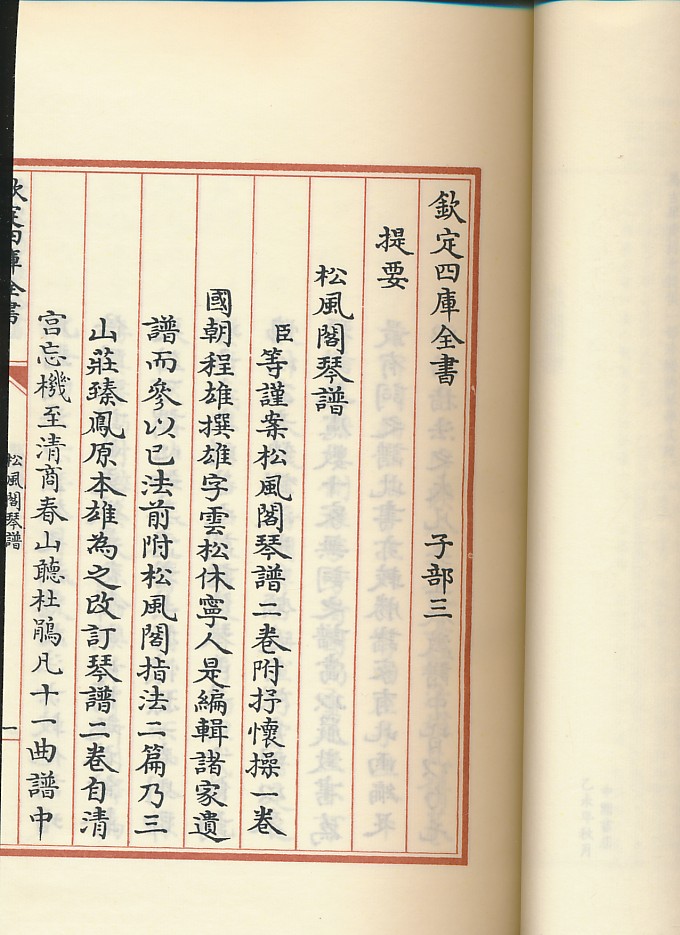 欽定四庫全書　子部三
提要
松風閣琴譜
臣等謹案松風閣琴譜二卷附抒懷操一卷
國朝程雄撰雄字雲松休寧人是編輯諸家遺
譜而參以已法前附松風閣指法二篇乃三
山莊臻鳳原本雄為之改訂琴譜二卷自清
宮忘機至清商春山聽杜鵑凡十一曲譜中
欽定四庫全書
松風閣琴譜
一